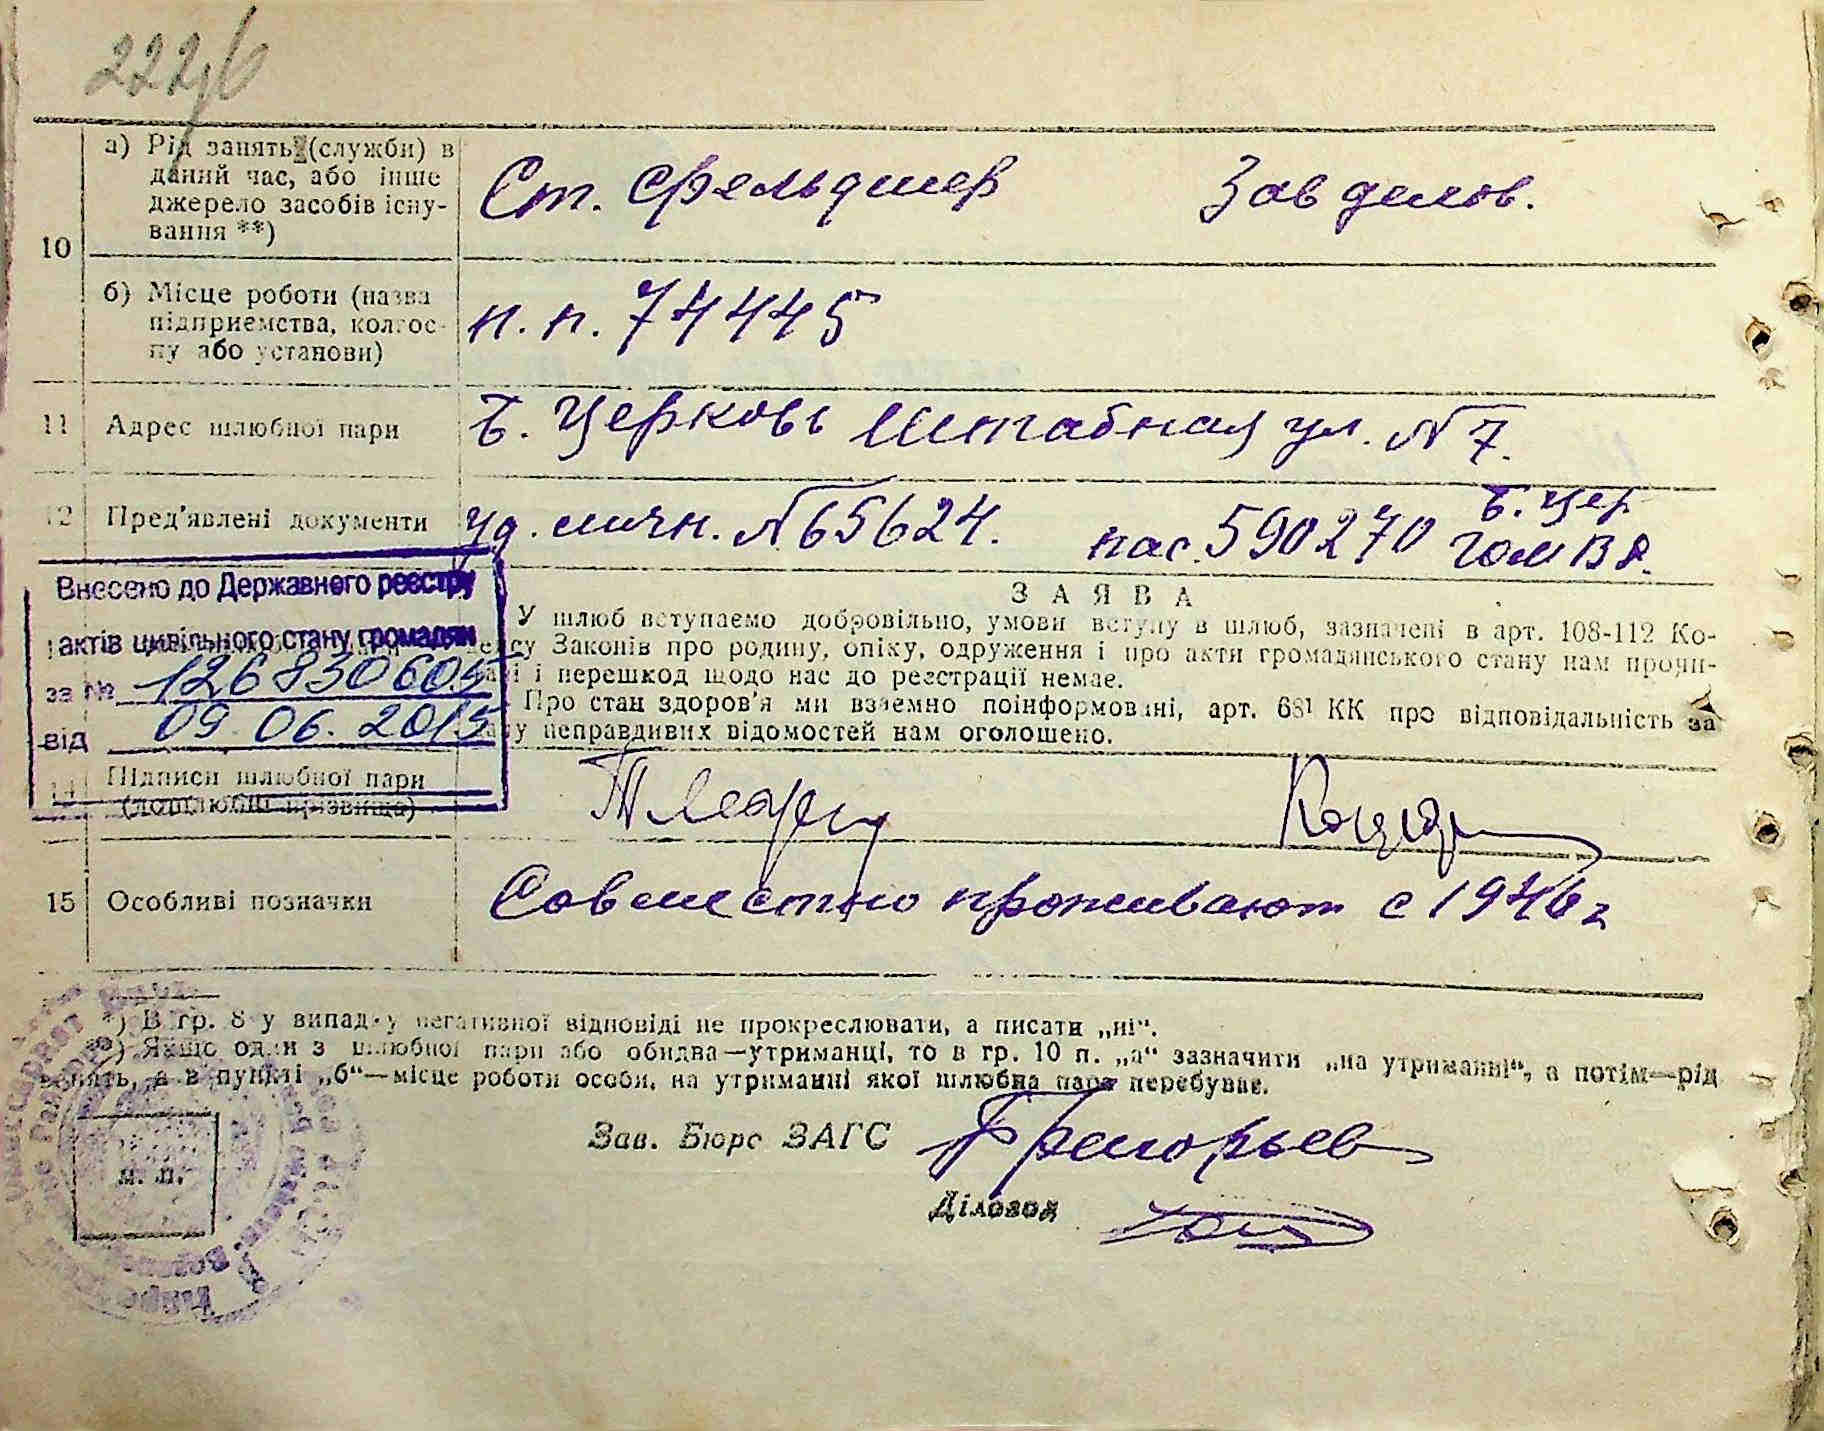 222/б
10
а) Рід занять (служби) в даний час, або інше джерело засобів існування **)
Ст. фельдшер Зав делов.
б) Місце роботи (назва підприємства, колгоспу або установи)
п.п. 74445
11 Адрес шлюбної пари
Б. Церковь Штабная ул. N 7.
12 Пред'явлені документи
Уд. личн. N 65624. пас. 590270 Б. Цер
Внесено до Державного реєстру
актів цивільного стану громадян
за № 126830605
від 09.06.2015
ЗАЯВА
У шлюб вступаємо добровільно, умови вступу в шлюб, зазначені в арт. 108-112 Ко-
су Законів про родину, опіку, одруження і про акти громадянського стану нам прочи-
і перешкод щодо нас до реєстрації немає.
Про стан здоров'я ми взаємно поінформовані, арт. 68¹ КК про відповідальність за
неправдивих відомостей нам оголошено.
14 Підписи шлюбної пари
(дошлюбні прізвища)
15 Особливі позначки
Совместно проживают с 1946 г
*) В гр. 8 у випадку негативної відповіді не прокреслювати, а писати „ні“.
**) Якщо один з шлюбної пари або обидва—утриманці, то в гр. 10 п. „а“ зазначити „на утриманні“, а потім—рід
занять, а в пункті „б“—місце роботи особи, на утриманні якої шлюбна пара перебуває.
Зав. Бюро ЗАГС Григорьев
Діловод
м. п.